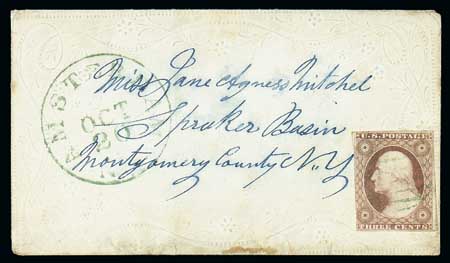 AMSTERDAM
OCT
20
N.Y.
Miss Jane Agness Mitchel
Spraker Basin
Montgomery County N.Y
U.S. POSTAGE
THREE CENTS